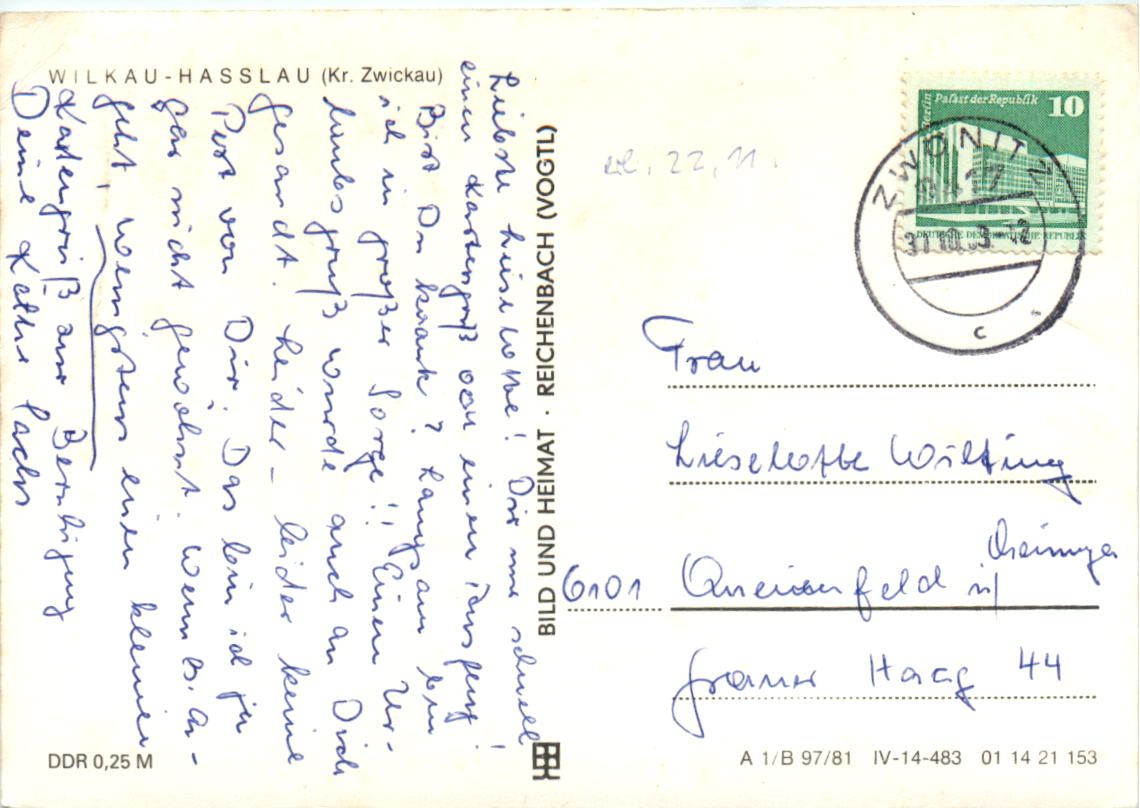 WILKAU-HASSLAU (Kr. Zwickau)
Liebste Lieselotte! Dir nur schnell
einen Kartengruß von einem Ausflug!
Bist Du krank? Langsam bin
ich in großer Sorge!! Einen Ur-
laubsgruß wurde auch an Dich
gesandt. Leider - leider keine
Post von Dir. Das bin ich ja
gar nicht gewöhnt. Wenn es. a-
geht, wenigstens einen kleinen
Kartengruß zur Beruhigung
Deine Käthe Sachs
DDR 0,25 M
BILD UND HEIMAT · REICHENBACH (VOGTL)
22.11.
Berlin
Palast der Republik
10
DEUTSCHE DEMOKRATISCHE REPUBLIK
ZWÖNITZ
9417
31.10.83 12
c
Frau
Lieselotte Wilting
6101 Queienfeld
Meininger
44
A 1/B 97/81 IV-14-483 01 14 21 153